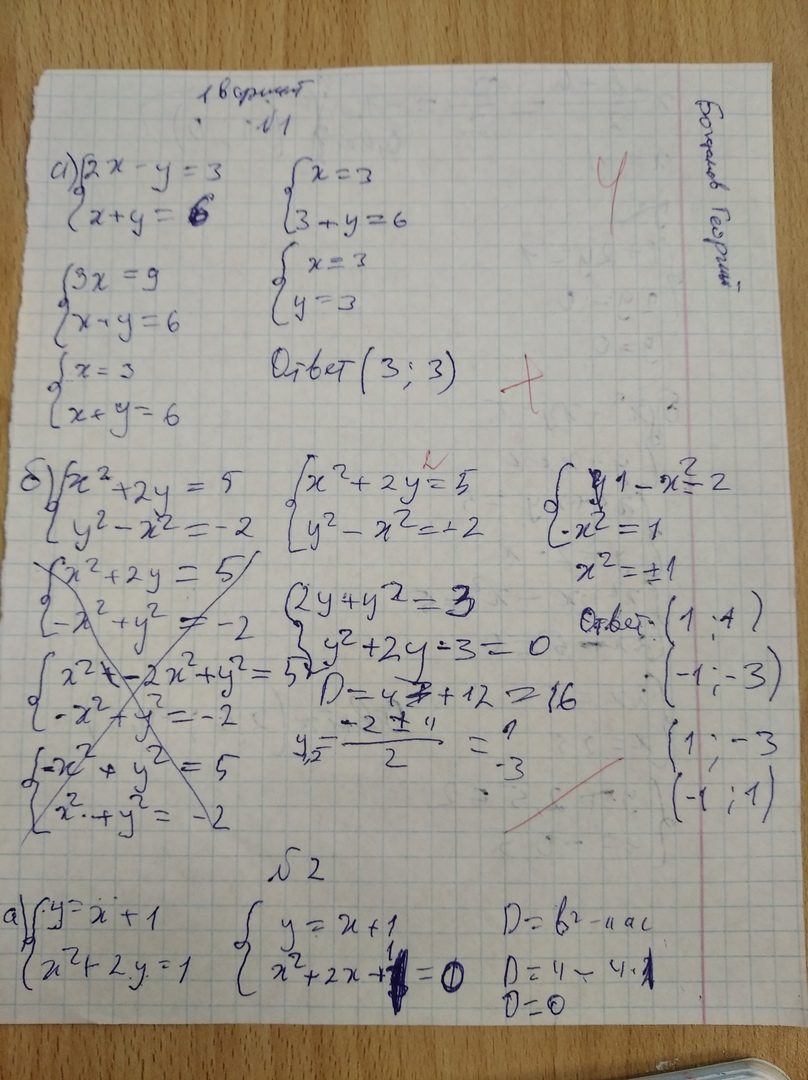 1 вариант
№1
а) {2x - y = 3
{x + y = 6
{3x = 9
{x + y = 6
{x = 3
{x + y = 6
{x = 3
{3 + y = 6
{x = 3
{y = 3
Ответ (3; 3)
+
4
Богданов Георгий
б) {x² + 2y = 5
{y² - x² = -2
{x² + 2y = 5
{-x² + y² = -2
{x² + -2x² + y² = 5
{-x² + y² = -2
{-x² + y² = 5
{x² + y² = -2
{x² + 2y = 5
{y² - x² = -2
{2y + y² = 3
{y² + 2y - 3 = 0
D = 4 + 12 = 16
y₁,₂ = (-2 ± 4)/2 = 1
-3
{1 - x² = 2
-x² = 1
x² = ±1
Ответ: (1; 1)
(-1; -3)
(1; -3
(-1; 1)
№2
а) {y = x + 1
{x² + 2y = 1
{y = x + 1
{x² + 2x + 1 = 0
D = b² - 4ac
D = 4 - 4·1
D = 0